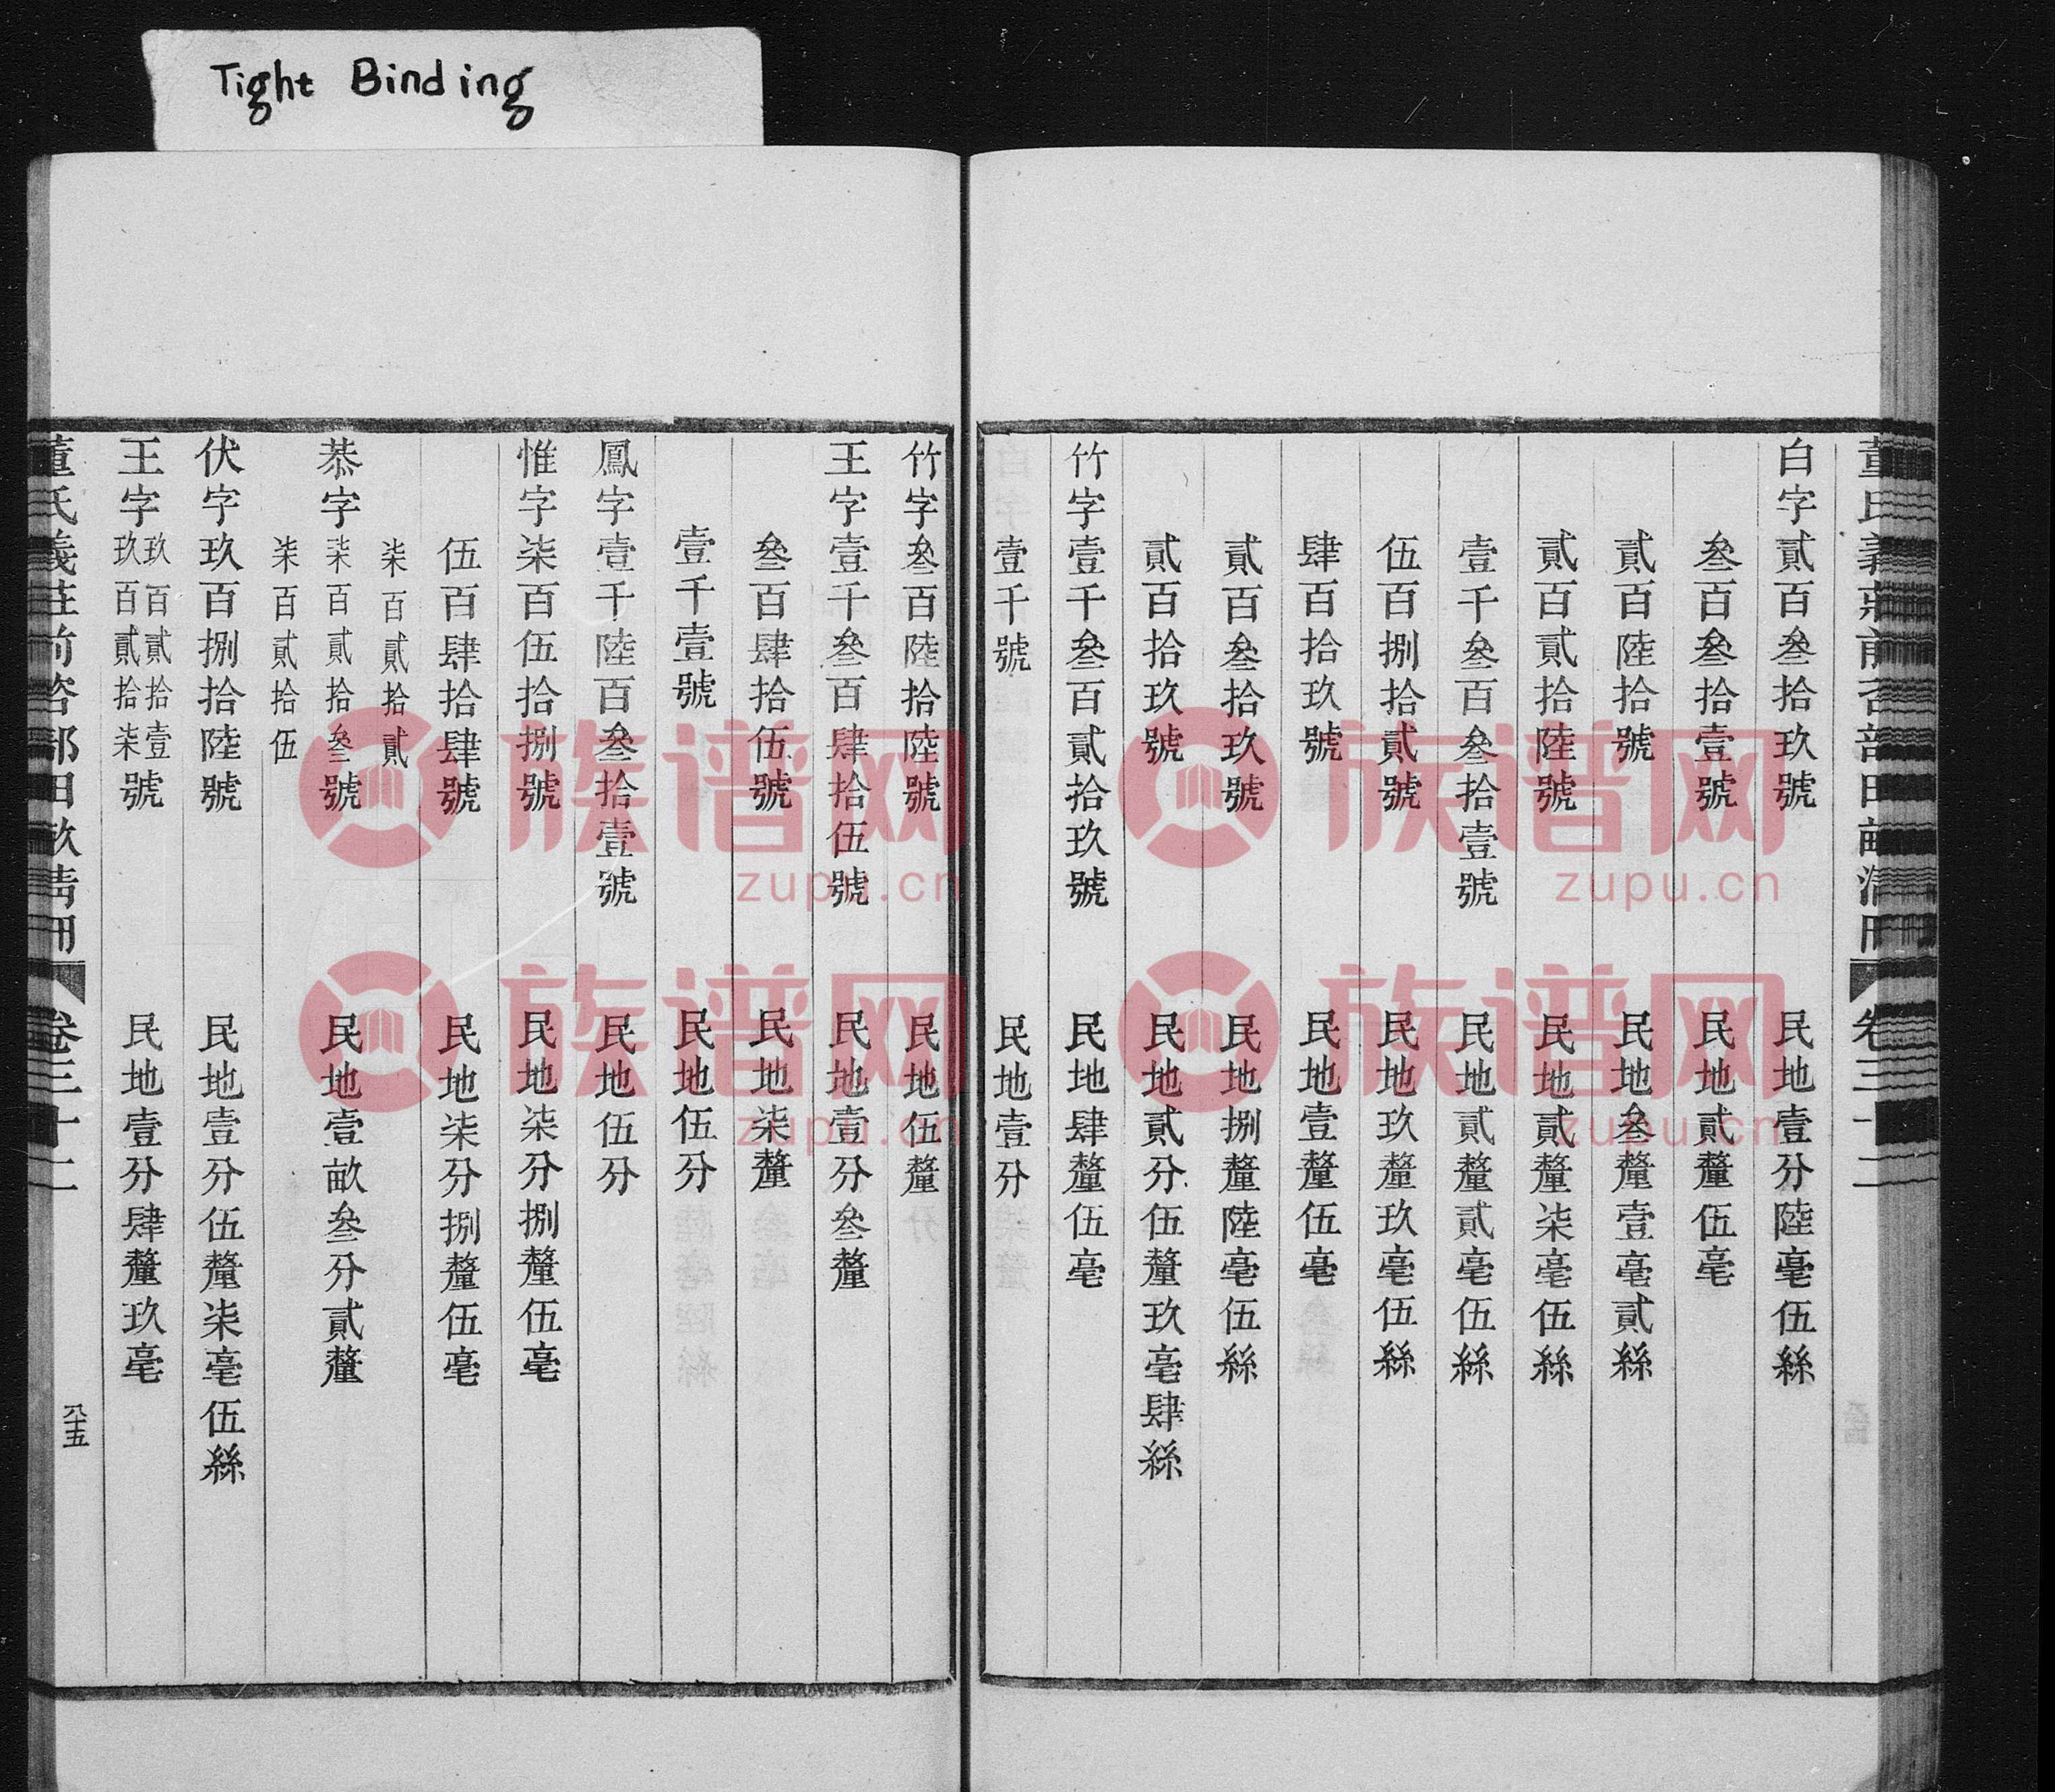 Tight Binding
董氏義莊前咨部田畝清冊 卷三十二
白字貳百叁拾玖號 民地壹分陸毫伍絲
叁百叁拾壹號 民地貳釐伍毫
貳百陸拾號 民地叁釐壹毫貳絲
貳百貳拾陸號 民地貳釐柒毫伍絲
壹千叁百叁拾壹號 民地貳釐貳毫伍絲
伍百捌拾貳號 民地玖釐玖毫伍絲
肆百拾玖號 民地壹釐伍毫
貳百叁拾玖號 民地捌釐陸毫伍絲
貳百拾玖號 民地貳分伍釐玖毫肆絲
竹字壹千叁百貳拾玖號 民地肆釐伍毫
壹千號 民地壹分
竹字叁百陸拾陸號 民地伍釐
王字壹千叁百肆拾伍號 民地壹分叁釐
叁百肆拾伍號 民地柒釐
壹千壹號 民地伍分
鳳字壹千陸百叁拾壹號 民地伍分
惟字柒百伍拾捌號 民地柒分捌釐伍毫
伍百肆拾肆號 民地柒分捌釐伍毫
柒百貳拾貳
恭字柒百貳拾叁號 民地壹畝叁分貳釐
柒百貳拾伍
伏字玖百捌拾陸號 民地壹分伍釐柒毫伍絲
王字玖百貳拾壹玖百貳拾柒號 民地壹分肆釐玖毫
董氏義莊前咨部田畝清冊 卷三十二 八十五
族谱网
zupu.cn
族谱网
zupu.cn
族谱网
zupu.cn
族谱网
zupu.cn